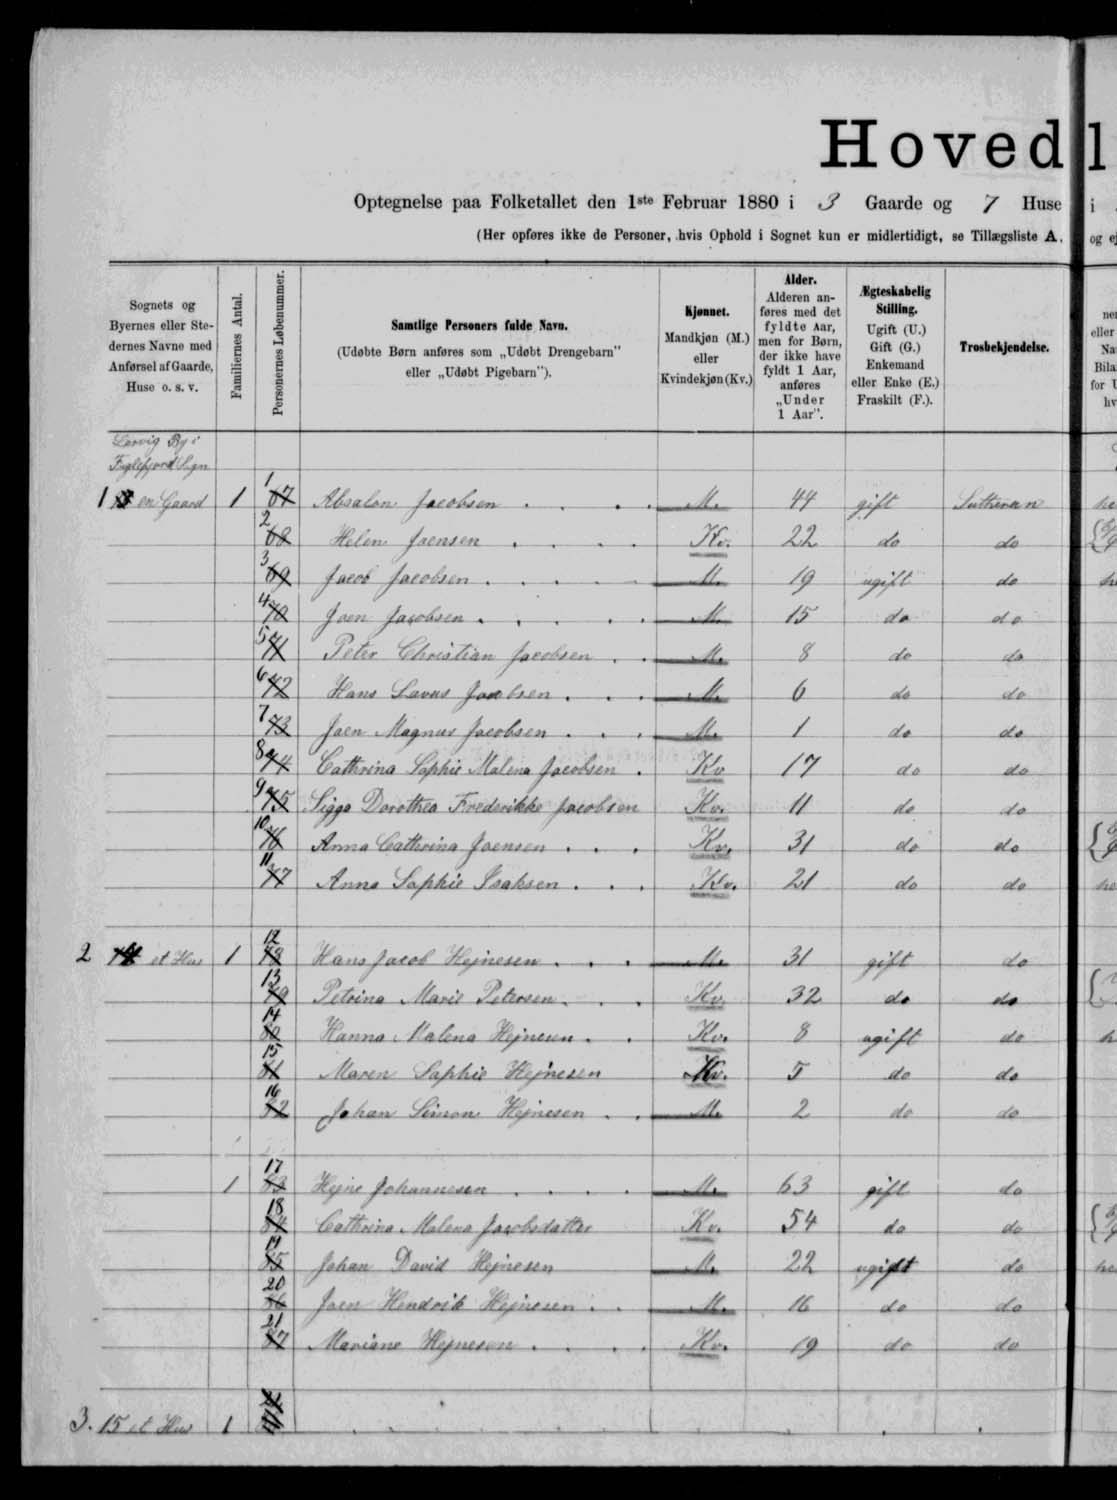 Hovedl
Optegnelse paa Folketallet den 1ste Februar 1880 i 3 Gaarde og 7 Huse i
(Her opføres ikke de Personer, hvis Ophold i Sognet kun er midlertidigt, se Tillægsliste A. og ej
Sognets og Byernes eller Stedernes Navne med Anførsel af Gaarde, Huse o. s. v.
Familiernes Antal.
Personernes Løbenummer.
Samtlige Personers fulde Navn.
(Udøbte Børn anføres som „Udøbt Drengebarn" eller „Udøbt Pigebarn").
Kjønnet.
Mandkjøn (M.) eller Kvindekjøn (Kv.)
Alder.
Alderen anføres med det fyldte Aar, men for Børn, der ikke have fyldt 1 Aar, anføres „Under 1 Aar".
Ægteskabelig Stilling.
Ugift (U.) Gift (G.) Enkemand eller Enke (E.) Fraskilt (F.).
Trosbekjendelse.
Lervig By i
Fuglefjord Sogn
1 13 en Gaard 1 1 67 Absalon Jacobsen M. 44 gift Lutheran
2 68 Helen Joensen Kv. 22 do do
3 69 Jacob Jacobsen M. 19 ugift do
4 70 Joen Jacobsen M. 15 do do
5 71 Peter Christian Jacobsen M. 8 do do
6 72 Hans Lavus Jacobsen M. 6 do do
7 73 Joen Magnus Jacobsen M. 1 do do
8 74 Cathrina Sophie Malena Jacobsen Kv 17 do do
9 75 Sigga Dorothea Frederikke Jacobsen Kv. 11 do do
10 76 Anna Cathrina Joensen Kv. 31 do do
11 77 Anna Sophie Isaksen Kv. 21 do do
2 14 et Hus 1 12 78 Hans Jacob Hejnesen M. 31 gift do
13 79 Petrina Marie Petersen Kv. 32 do do
14 80 Hanna Malena Hejnesen Kv. 8 ugift do
15 81 Maren Sophie Hejnesen Kv. 5 do do
16 82 Johan Simon Hejnesen M. 2 do do
1 17 83 Hejne Johannesen M. 63 gift do
18 84 Cathrina Malena Jacobsdatter Kv. 54 do do
19 85 Johan David Hejnesen M. 22 ugift do
20 86 Joen Hendrik Hejnesen M. 16 do do
21 87 Mariane Hejnesen Kv. 19 do do
3. 15 et Hus 1